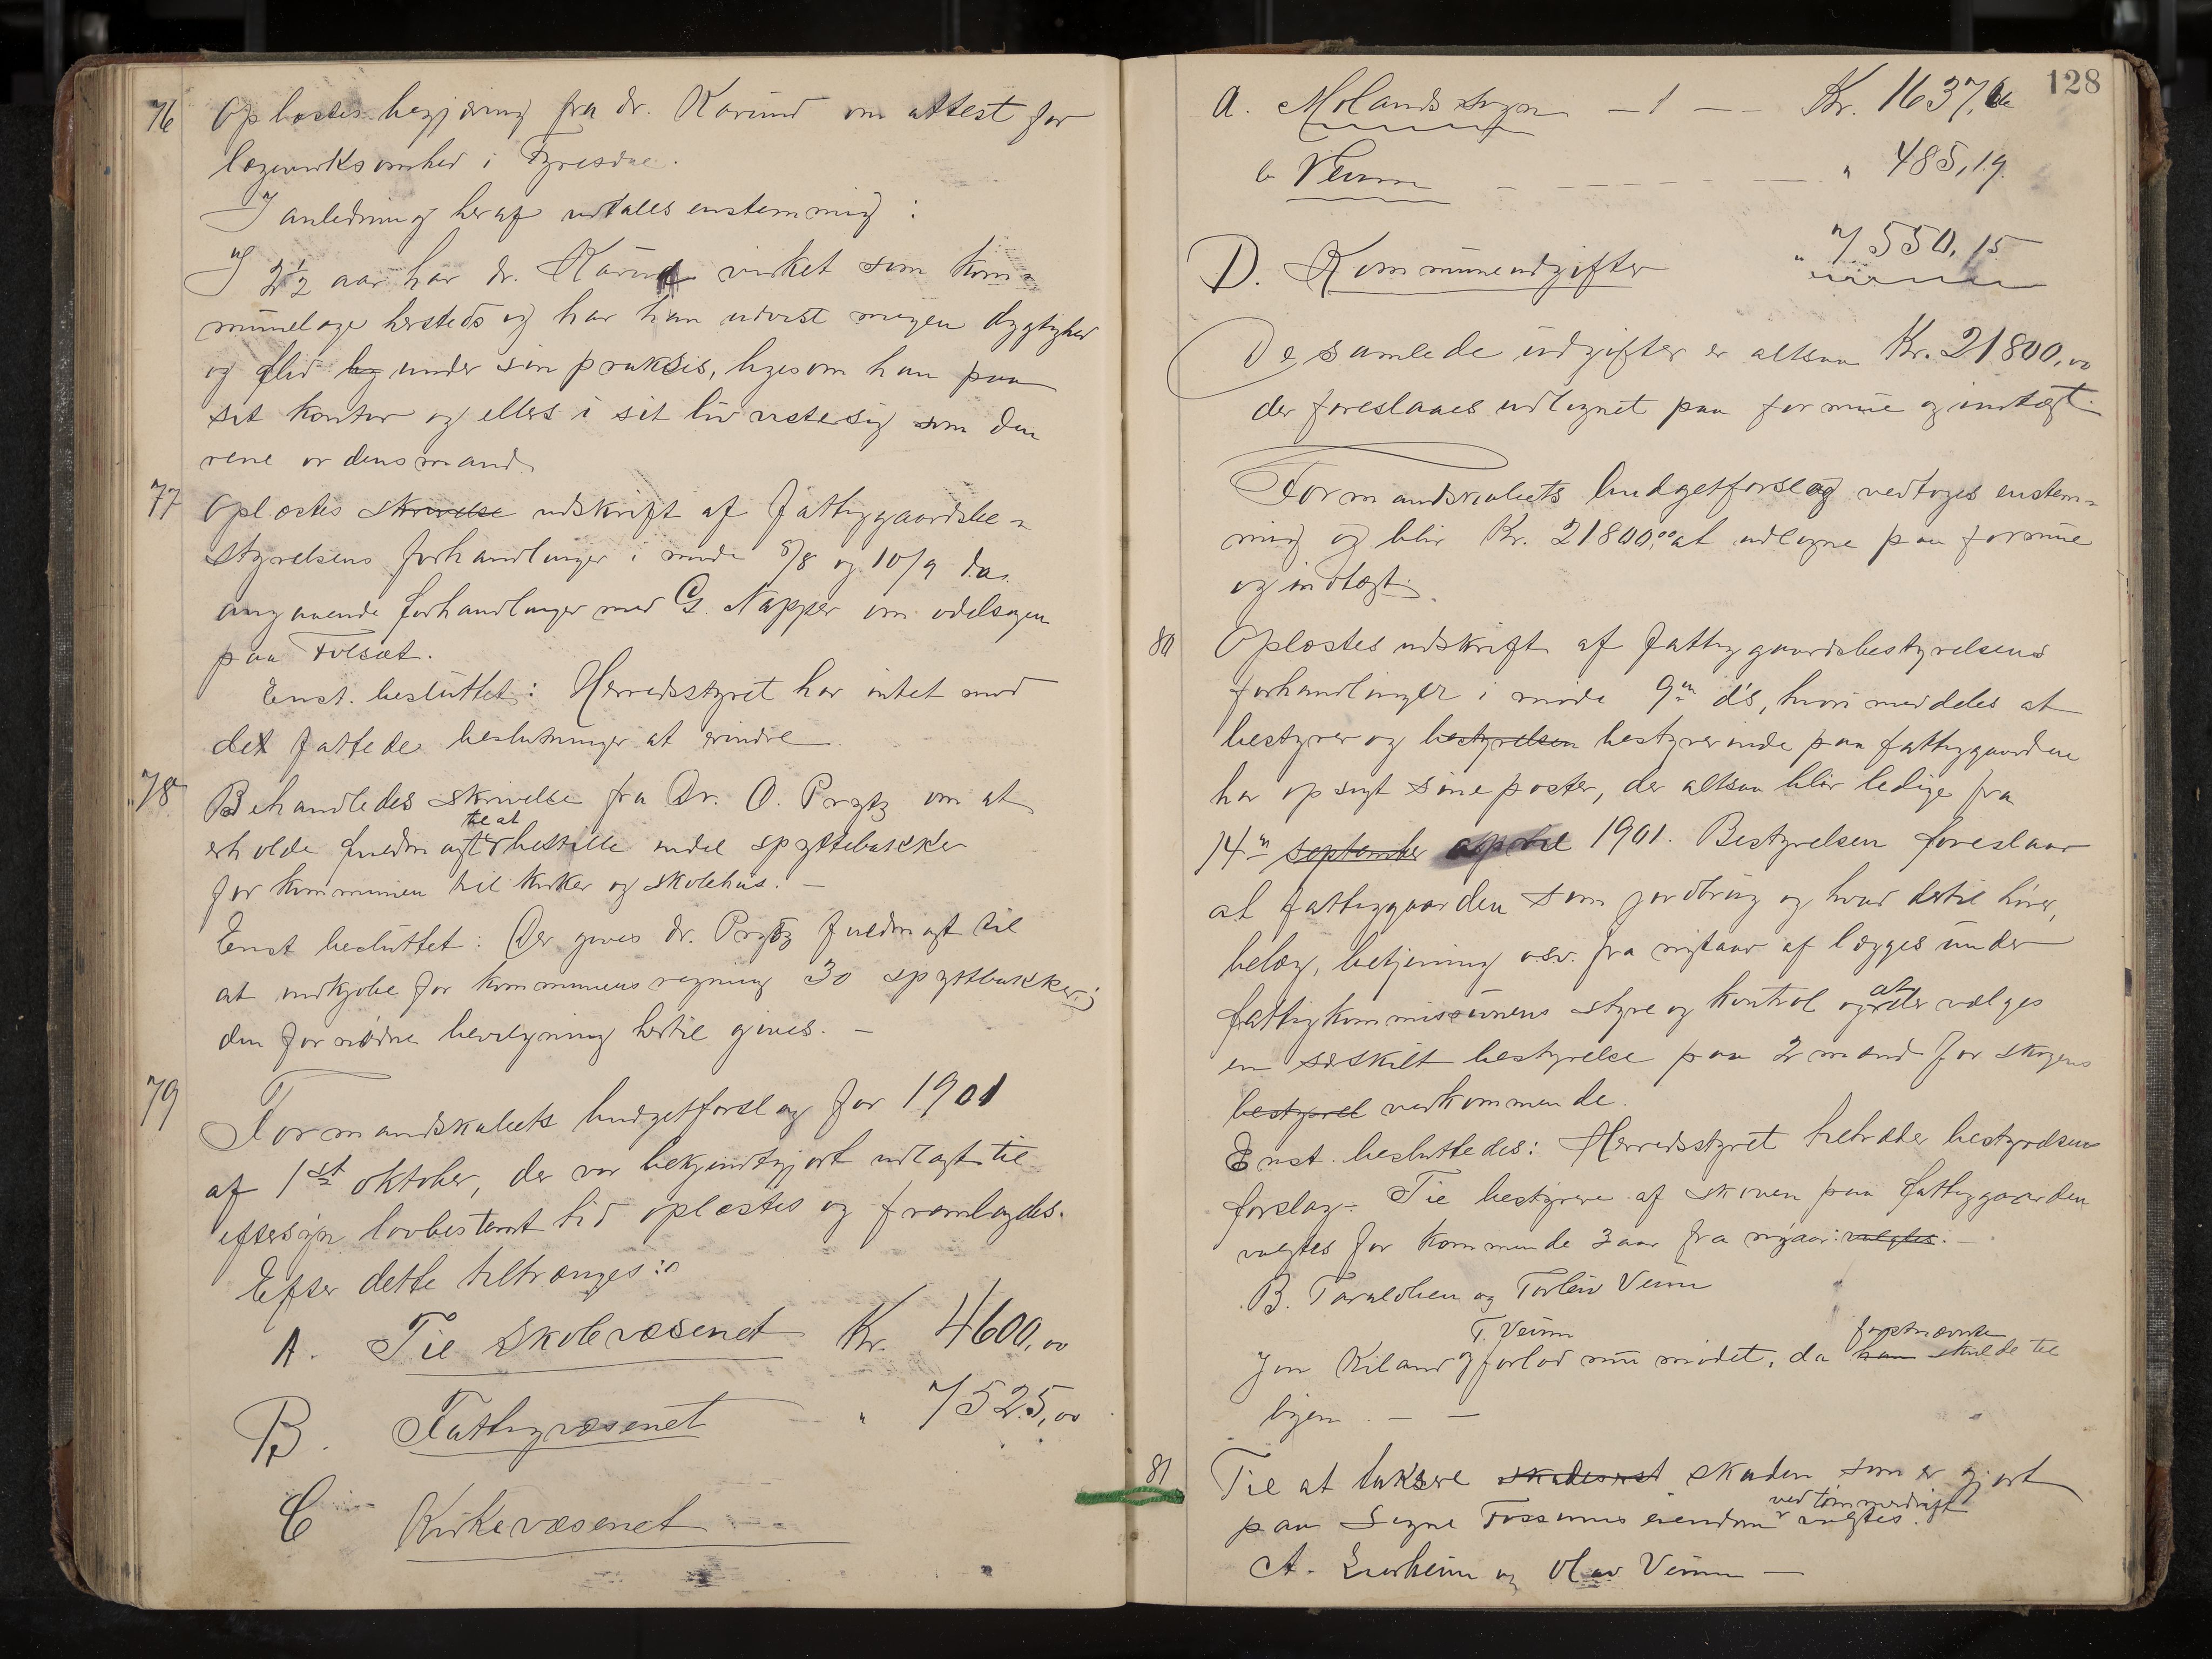 76 Oplæstes begjæring fra dr. Kaurin om attest for
lægevirksomhed i Fyresdal.
I anledning heraf udtales enstemmig:
I 2½ aar har dr. Kaurin virket som kom=
munelæge hersteds og har han udvist megen dygtighed
og flid og under sin praksis, ligesom han paa
sit kontor og ellers i sit liv viste sig som den
rene ordensmand.
77 Oplæstes skrivelse udskrift af Fattiggaardsbe=
styrelsens forhandlinger i møde 5/8 og 10/9 d.a.
angaaende forhandlinger med G. Napper om odelsagen
paa Folsæt.
Enst. besluttet: Herredsstyret har intet mod
det fattede beslutninger at erindre
78 Behandledes skrivelse fra Dr. O. Prytz om at
til at
erholde fuldmagt bestille endel spyttebakker
for kommunen til kirker og skolehus. —
Enst besluttet: Der gives dr. Prytz fuldmagt til
at indkjøbe for kommunens regning 30 spyttbakker;
den fornødne bevilgning hertil gives. —
79 Formandskabets budgetforslag for 1901
af 1ste oktober, der var bekjendtgjort udlagt til
eftersyn lovbestemt tid oplæstes og fremlagdes.
Efter dette tiltrænges:
A. Til Skolevæsenet Kr. 4600,00
B. Fattigvæsenet " 7525,00
C Kirkevæsenet
128
a. Molands sogn — 1 — Kr. 1637,66
b Veum — — — " 485,19
D. Kommuneudgifter " 7550,15
De samlede udgifter er altsaa Kr. 21800,00
der foreslaaes udlignet paa formue og indtægt.
Formandskabets budgetforslag vedtoges enstem=
mig og blir Kr. 21800,00 at udligne paa formue
og indtægt.
80 Oplæstes udskrift af fattiggaardsbestyrelsens
forhandlinger i møde 9de ds, hvori meddeles at
bestyrer og bestyrelsen bestyrerinde paa fattiggaarden
har opsagt sine poster, der altsaa blir ledige fra
14de september april 1901. Bestyrelsen foreslaar
at fattiggaarden som jordbrug og hvad dertil hører,
belæg, betjening osv. fra nytaar af lægges under
fattigkommissionens styre og kontrol og at der vælges
en særskilt bestyrelse paa 2 mænd for skogens
bestyrel vedkommende.
Enst. besluttedes: Herredsstyret tiltræder bestyrelsens
forslag. Til bestyrere af skoven paa fattiggaarden
valgtes for kommende 3 aar fra nyaar: valgtes. —
B. Taraldlien og Torleiv Veum
T. Veum førstnævnte
Jon Kiland og forlod nu mødet, da han skulde til
byen. — —
81 Til at taksere skadesest skaden som er gjort
ved tømmerdrift
paa Signe Fossums eiendom valgtes.
A. Lurheim og Olav Veum —